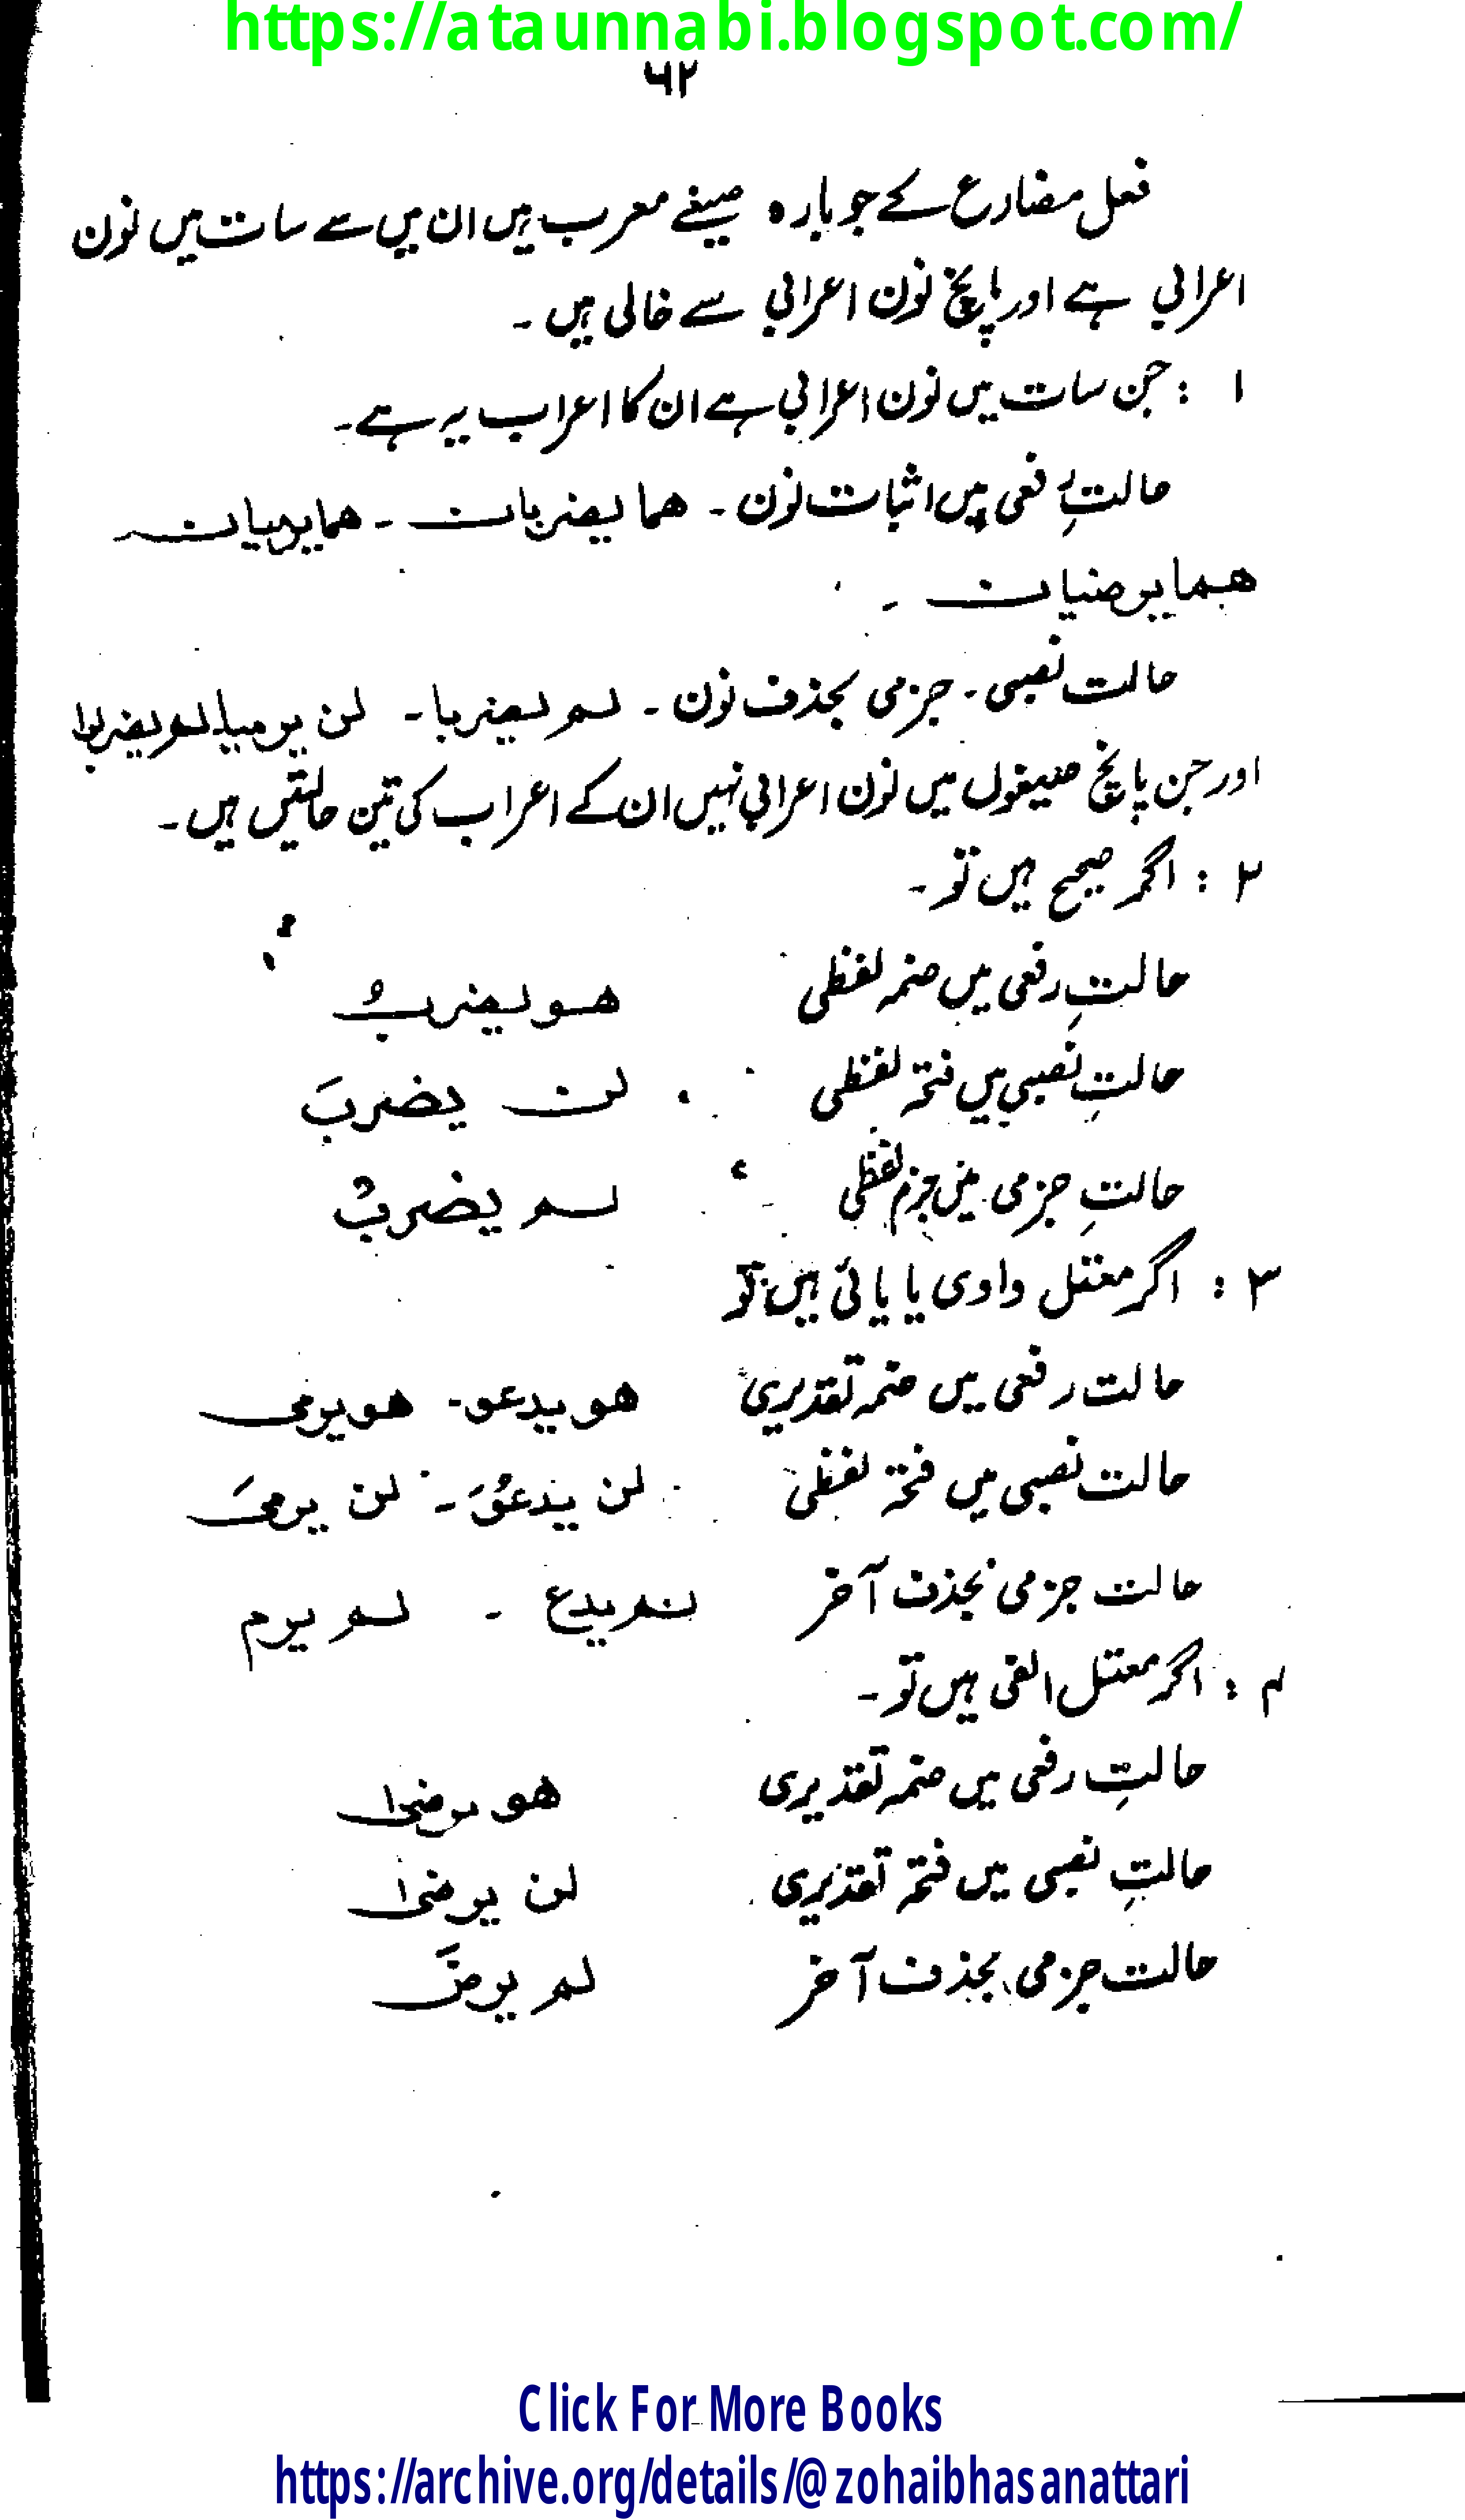 https://ataunnabi.blogspot.com/
۶۲
فعل مضارع کے جو بارہ صیغے معرب ہیں ان میں سے سات میں نون
اعرابی ہے اور پانچ نون اعرابی سے خالی ہیں ۔
۱ : جن سات میں نون اعرابی ہے ان کا اعراب یہ ہے۔
حالتِ رفعی میں اثبات نون ۔ هما يضربان ۔ هما يرميان
هما يرضيان ۔
حالت نصبی ۔ جزمی بحذف نون ۔ لم يضربا ۔ لن يرميا لم يضربوا
اور جن پانچ صیغوں میں نون اعرابی نہیں ان کے اعراب کی تین حالتیں ہیں ۔
۲ : اگر صحیح ہیں تو ۔
حالتِ رفعی میں ضمہ لفظی هو يضربُ
حالتِ نصبی میں فتحہ لفظی لن يضربَ
حالتِ جزمی میں جزم لفظی لم يضربْ
۳ : اگر معتل واوی یا یائی ہیں تو
حالت رفعی میں ضمہ تقدیری هو يدعو ۔ هو يرمى
حالت نصبی میں فتحہ لفظی لن يدعُوَ ۔ لن يرمىَ
حالت جزمی بحذف آخر لم يدع ۔ لم يرم
۴ : اگر معتل الفی ہیں تو ۔
حالتِ رفعی میں ضمہ تقدیری هو يرضىٰ
حالتِ نصبی میں فتحہ تقدیری لن يرضىٰ
حالت جزمی بحذف آخر لم يرضَ
Click For More Books
https://archive.org/details/@zohaibhasanattari